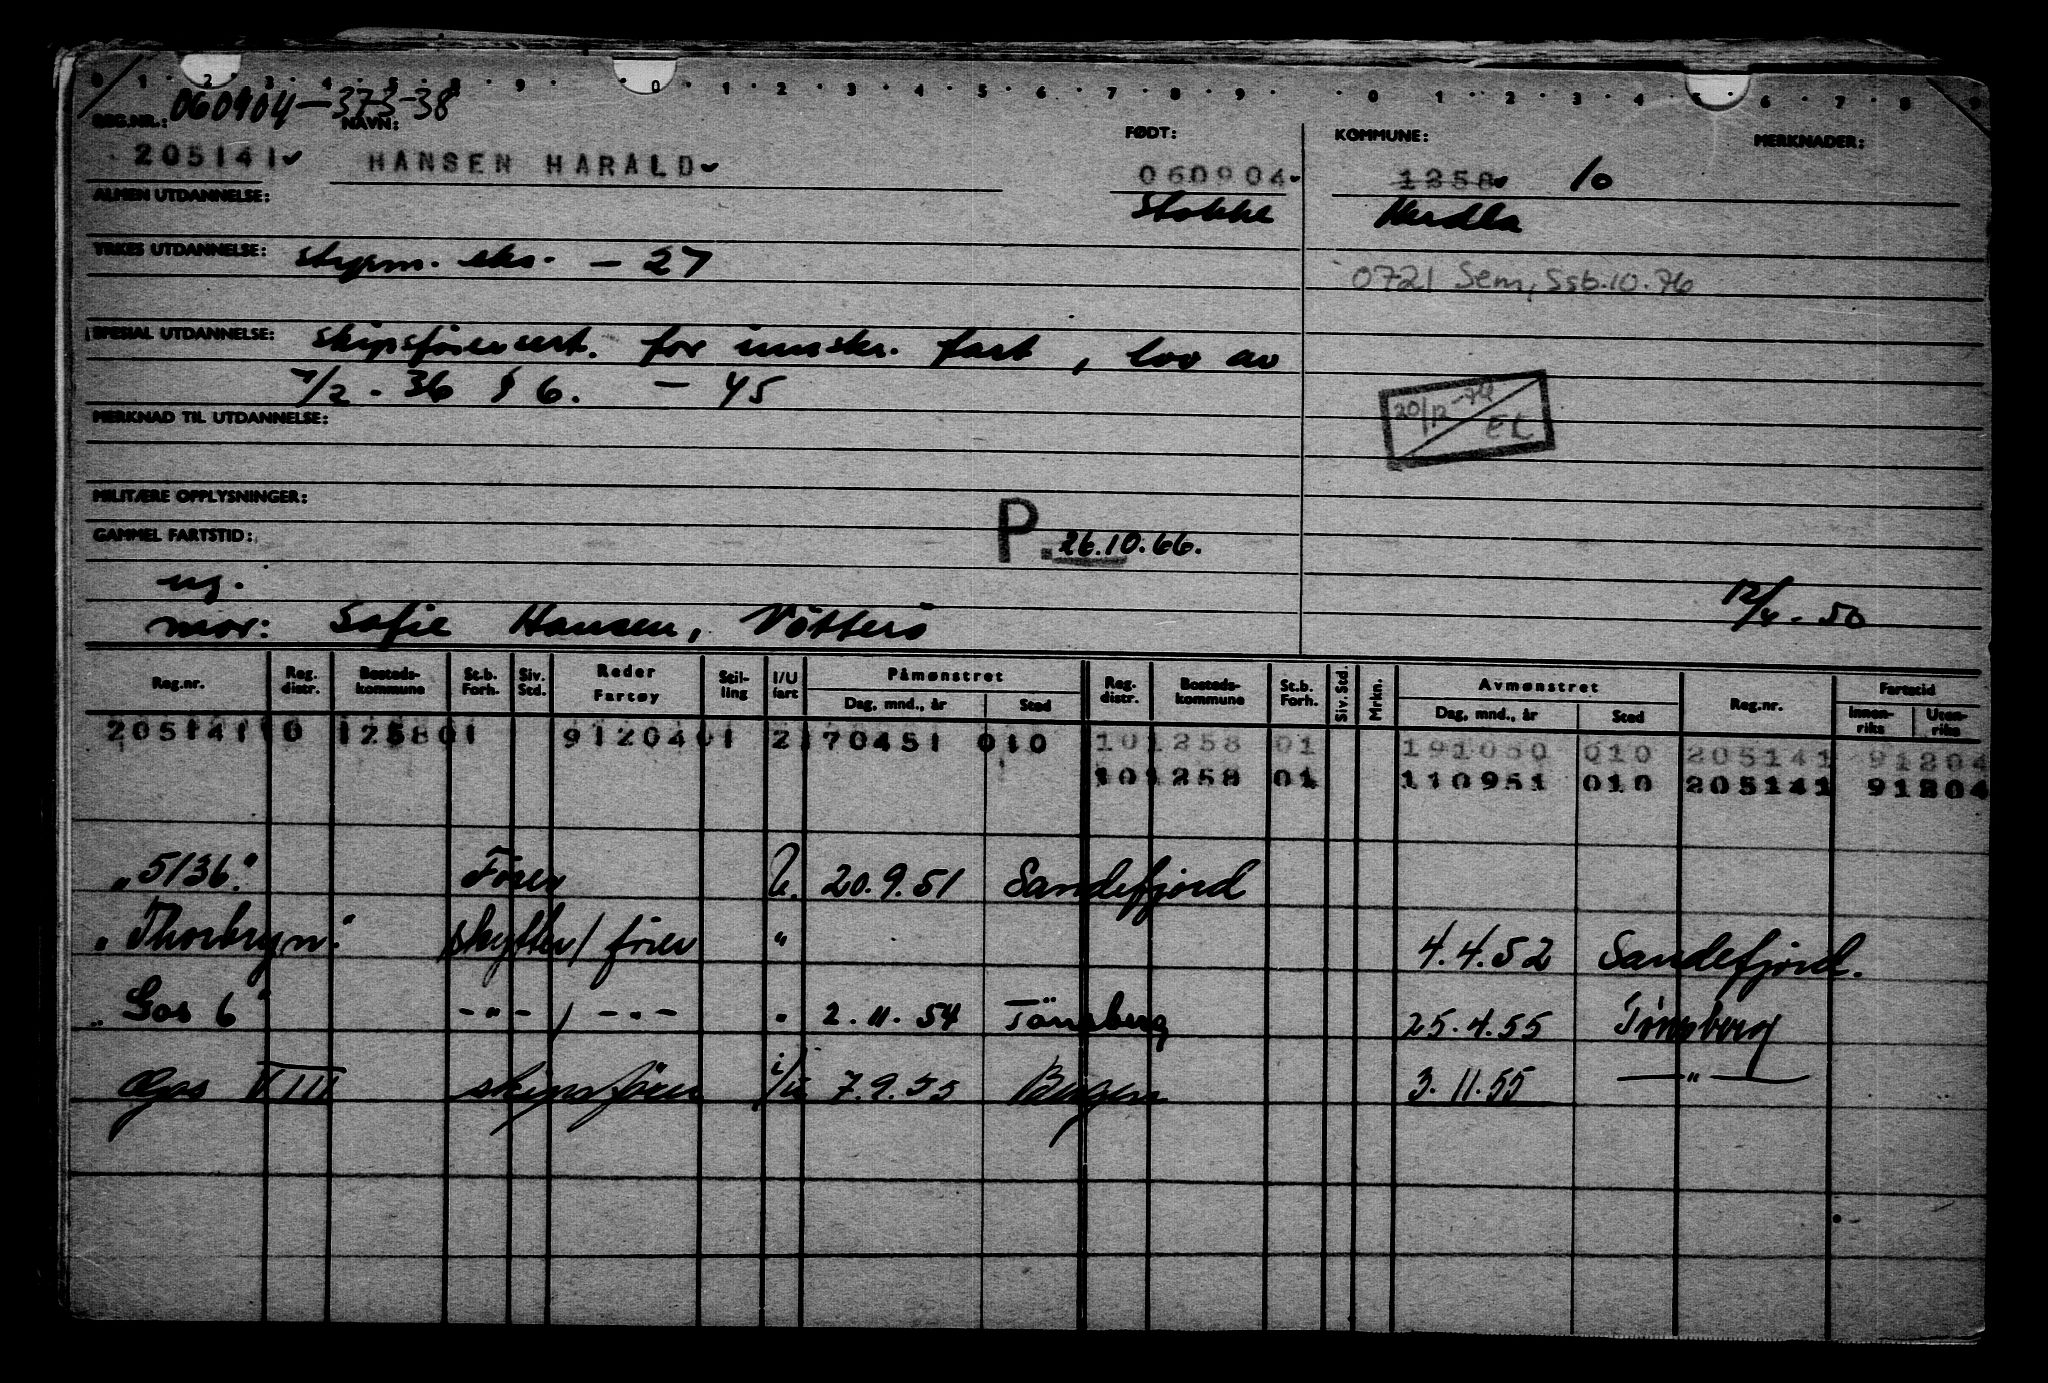 0 1 2 3 4 5 8 9 0 1 2 3 4 5 6 7 8 9 0 1 2 3 4 5 6 7 8 9
060904-373-38
REG.NR.: NAVN: FØDT: KOMMUNE: MERKNADER:
205141 HANSEN HARALD 060904 1258 10
ALMEN UTDANNELSE: Stokke Herdla
YRKES UTDANNELSE: styrm. eks. - 27
0721 Sem, Ssb.10.76
SPESIAL UTDANNELSE: skipsførersert. for innskr. fart, lov av
7/2 - 36 § 6. - 45
20/12 -74 EL
MERKNAD TIL UTDANNELSE:
MILITÆRE OPPLYSNINGER:
GAMMEL FARTSTID: P. 26.10.66.
ug.
12/4 - 50
mor: Sofie Hansen, Nötterö
Reg.nr. Reg. distr. Bosteds-kommune St.b. Forh. Siv. Std. Reder Fartøy Stil-ling I/U fart Påmønstret Dag, mnd., år Sted Reg. distr. Bosteds-kommune St.b. Forh. Siv. Std. Mrkn. Avmønstret Dag, mnd., år Sted Reg.nr. Fartstid Innen-riks Uten-riks
205141 10 1258 01 91204 01 2 170451 010 10 1258 01 191050 010 205141 91204
10 1258 01 110951 010 205141 91204
"5136." Förer U. 20.9.51 Sandefjord
"Thorbryn." skytter/förer " 4.4.52 Sandefjord.
"Gos 6" -"-/-"- " 2.11.54 Tönsberg 25.4.55 Tönsberg
Gos VIII skipsförer i/u 7.9.55 Bergen 3.11.55 -"-